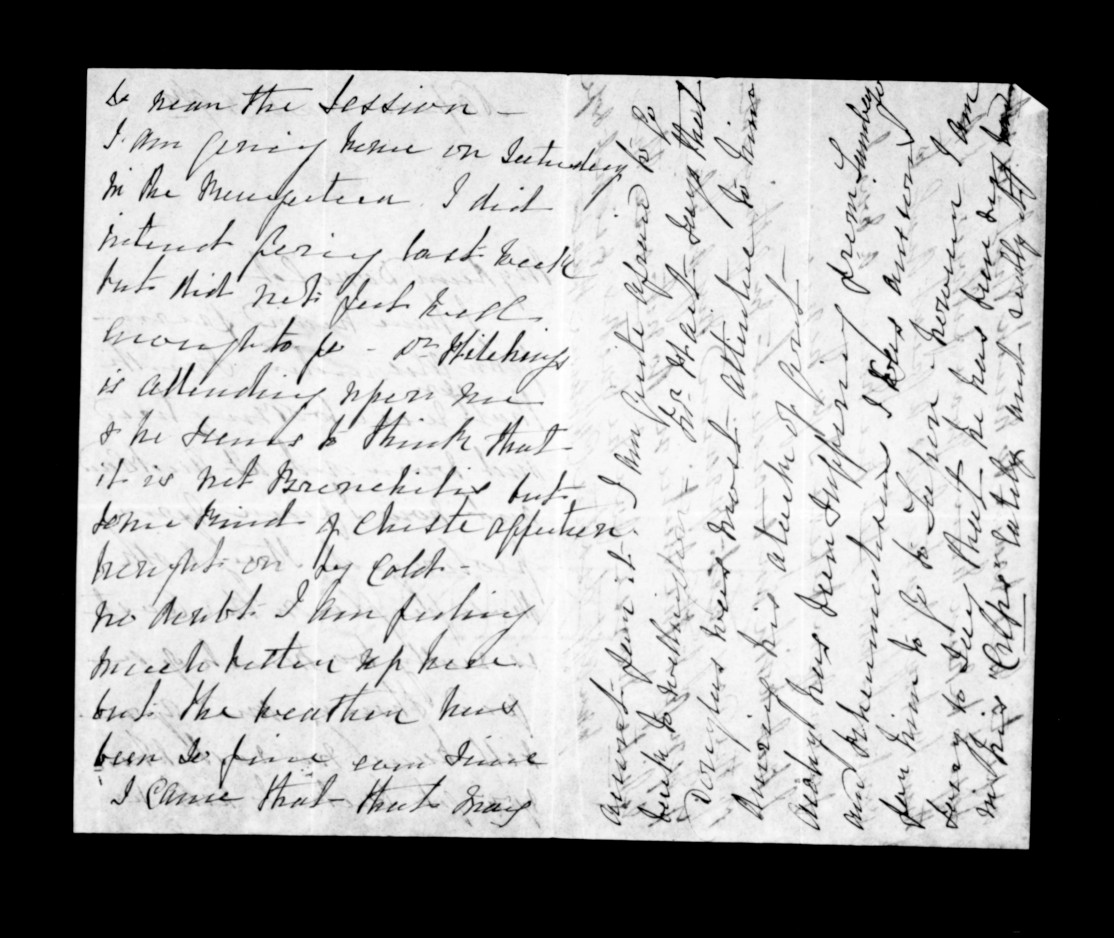 so near the Session -
I am going home on Saturday
in the Rangatira I did
intend going last week
but did not feel well
enough to go - Dr Hitchings
is attending upon me
& he seems to think that
it is not Bronchitis but
some kind of Chest affection
brought on by cold -
no doubt I am feeling
much better up here
but the weather has
been so fine ever since
I came that that may
account for it I am quite afraid to go
back to Wellington - Mr. says that
Douglas was most attentive to him
during his attack of gout -
Archy has been suffering from Lumbago
and rheumatism I was anxious for
him to go to however I am
sorry to say that he has been very
in his Cups lately and sadly